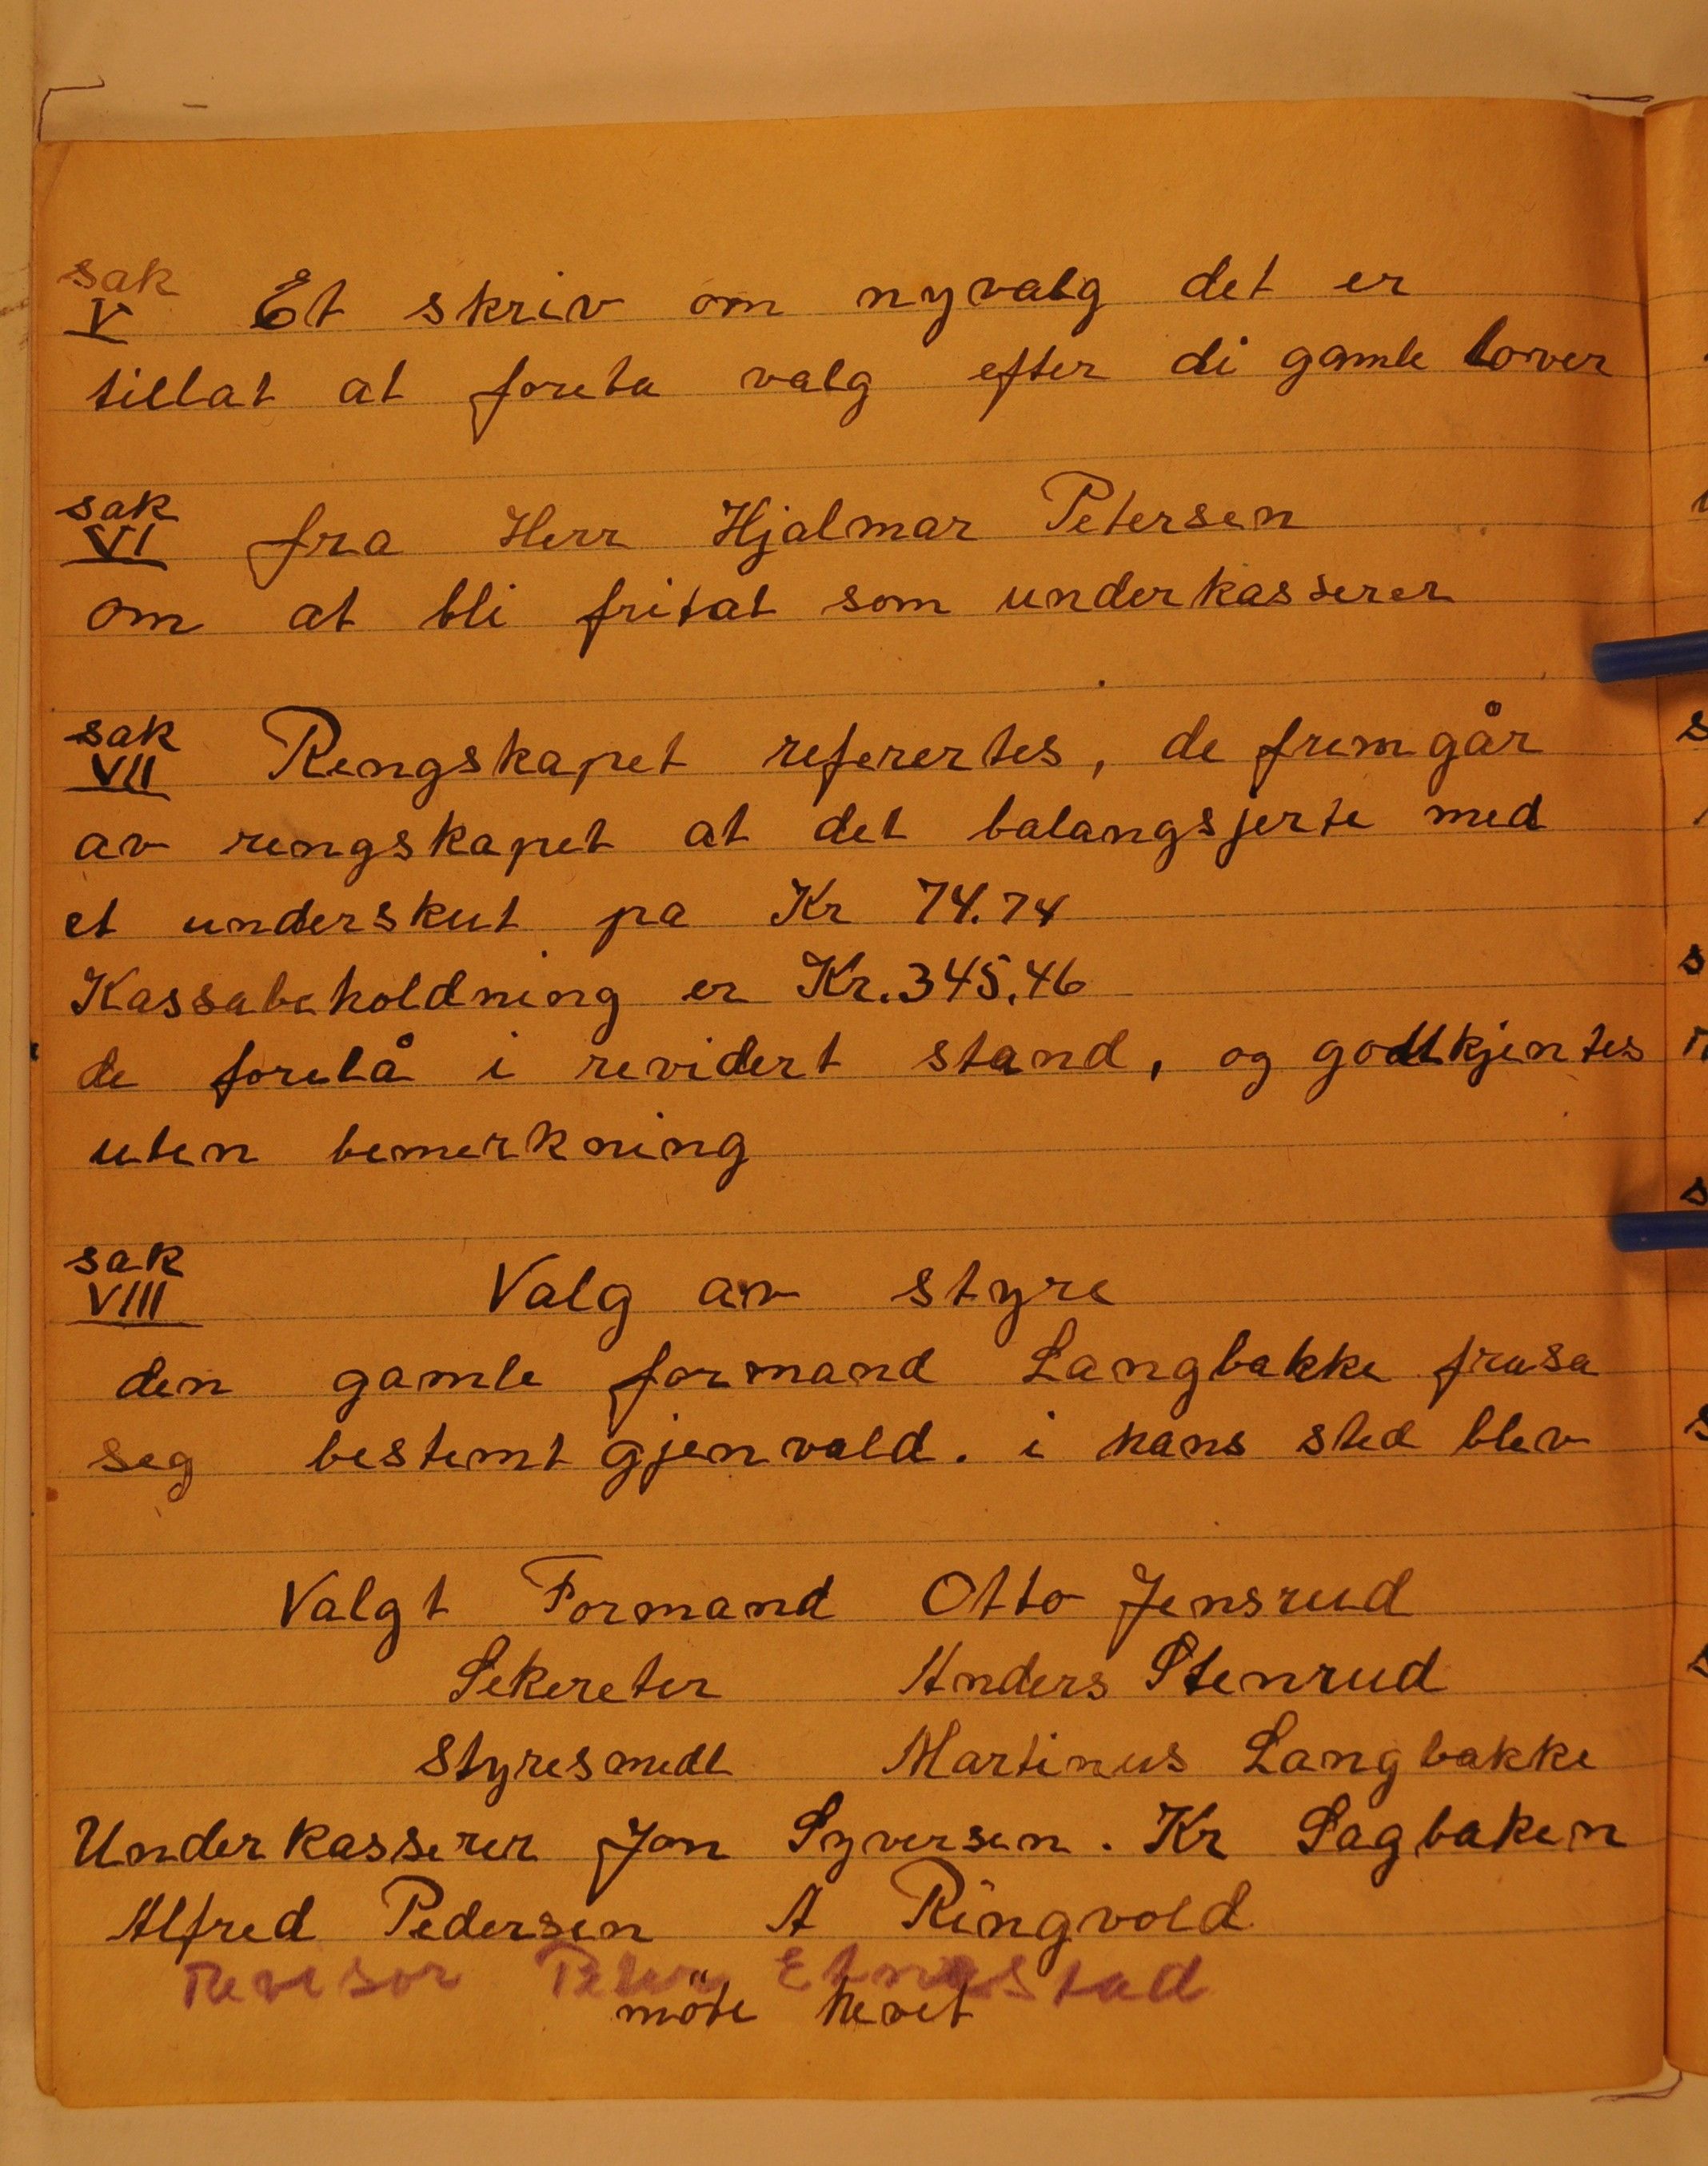 sak
V Et skriv om nyvalg det er
tillat at foreta valg efter di gamle lover
sak
VI fra Herr Hjalmar Petersen
om at bli fritat som underkasserer
sak
VII Rengskapet referertes, de fremgår
av rengskapet at det balangsjerte med
et underskut pa Kr 74.74
Kassabeholdning er Kr. 345,46
de forelå i revidert stand, og godtkjentes
uten bemerkning
sak
VIII Valg av styre
den gamle formand Langbakke frasa
seg bestemt gjenvald. i hans sted blev
Valgt Formand Otto Jensrud
Sekereter Anders Stenrud
styresmedl Martinus Langbakke
Underkasserer Jon Syversen. Kr Sagbaken
Alfred Pedersen A Ringvold
Revisor Stad
möte hevet